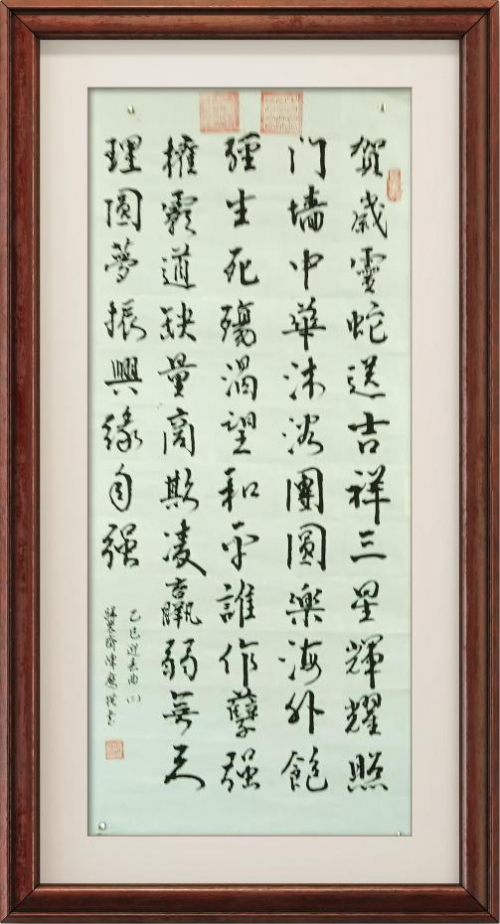 賀歲靈蛇送吉祥三星輝耀照
门墙中華沐浴團圓樂海外飽
疆生死殤渴望和平誰作孽强
權霸道缺量商欺凌羸弱無天
理圓夢振興緣自强
乙巳迎春曲